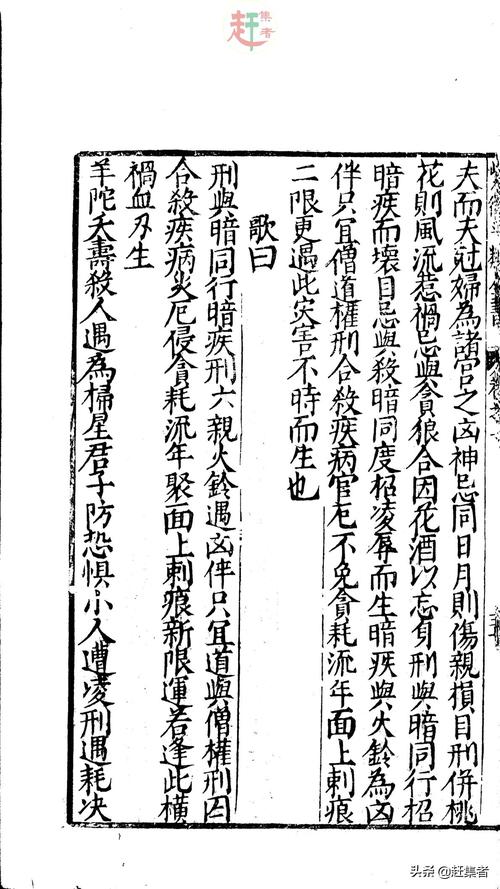 赶集者
夫而夭尅婦為諸宮之凶神忌同日月則傷親損目刑併桃
花則風流惹禍忌與貪狼合因花酒以忘身刑與暗同行招
暗疾而壞目忌與殺暗同度招凌辱而生暗疾與火鈴為凶
伴只宜僧道權刑合殺疾病官厄不免貪耗流年面上刺痕
二限更遇此灾害不時而生也
歌曰
刑與暗同行暗疾刑六親火鈴遇凶伴只宜道與僧權刑囚
合殺疾病災厄侵貪耗流年聚面上刺痕新限運若逢此橫
禍血刃生
羊陀夭壽殺人遇為掃星君子防恐懼小人遭凌刑遇耗决
头条@赶集者